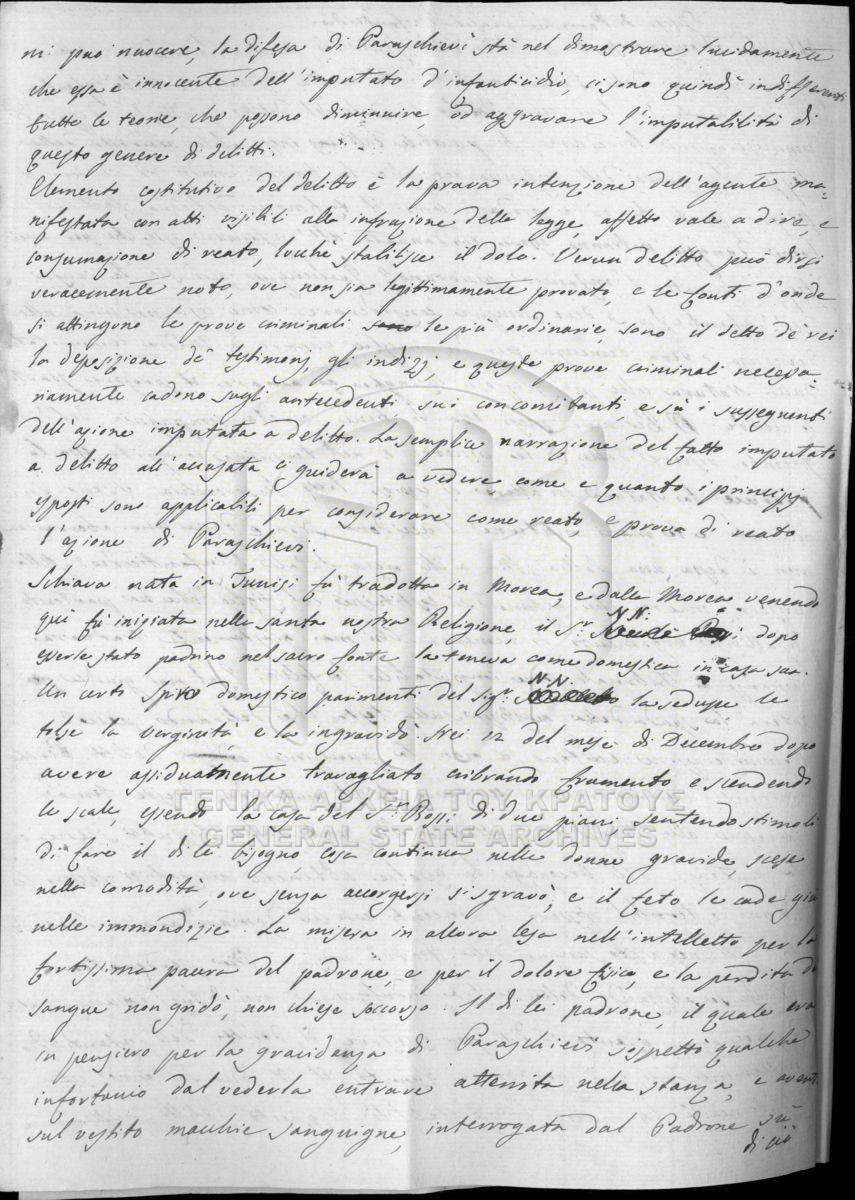 ni può nuocere, la difesa di Paraschievì stà nel dimostrare lucidamente
che essa è innocente dell'imputato d'infanticidio, ci sono quindi indifferenti
tutte le teorie, che possono diminuire, od aggravare l'imputabilità di
questo genere di delitti.
Elemento costitutivo del delitto è la prava intenzione dell'agente ma=
nifestata con atti visibili alla infrazione della legge, affetto vale a dire, e
consumazione di reato, locchè stabilisce il dolo. Verun delitto può dirsi
veracemente noto, ove non sia legittimamente provato, e le fonti d'onde
si attingono le prove criminali le più ordinarie, sono il detto de' rei
la deposizione de' testimonj, gli indizj, e queste prove criminali necessa=
riamente cadono sugli antecedenti, sui concomitanti, e sù i susseguenti
dell'azione imputata a delitto. La semplice narrazione del fatto imputato
a delitto all'accusata ci guiderà a vedere come e quanto i principj
esposti sono applicabili per considerare come reato, e prova di reato
l'azione di Paraschievi.
Schiava nata in Tunisi fù tradotta in Morea, e dalla Morea venendo
quì fù iniziata nella santa nostra Religione, il S.r N.N. dopo
esserle stato padrino nel sacro fonte la teneva come domestica in casa sua.
Un certo Spiro domestico parimenti del sig.r N.N. la sedusse le
tolse la verginità, e la ingravidò. Nei 12 del mese di Decembre dopo
avere assiduamente travagliato cribrando frumento e scendendo
le scale, essendo la casa del S.r Rossi di due piani sentendo stimoli
di fare il di lei bisogno, cosa continua nelle donne gravide, scese
nella comodità, ove senza accorgersi si sgravò, e il feto le cade giù
nelle immondizie. La misera in allora lesa nell'intelletto per la
fortissima paura del padrone, e per il dolore fisico, e la perdita di
sangue non gridò, non chiese soccorso. Il di lei padrone, il quale era
in pensiero per la gravidenza di Paraschievi sospettò qualche
infortunio dal vederla entrare atterrita nella stanza, e aventi
sul vestito macchie sanguigne, interrogata dal Padrone sù
di ciò
ΓΕΝΙΚΑ ΑΡΧΕΙΑ ΤΟΥ ΚΡΑΤΟΥΣ
GENERAL STATE ARCHIVES